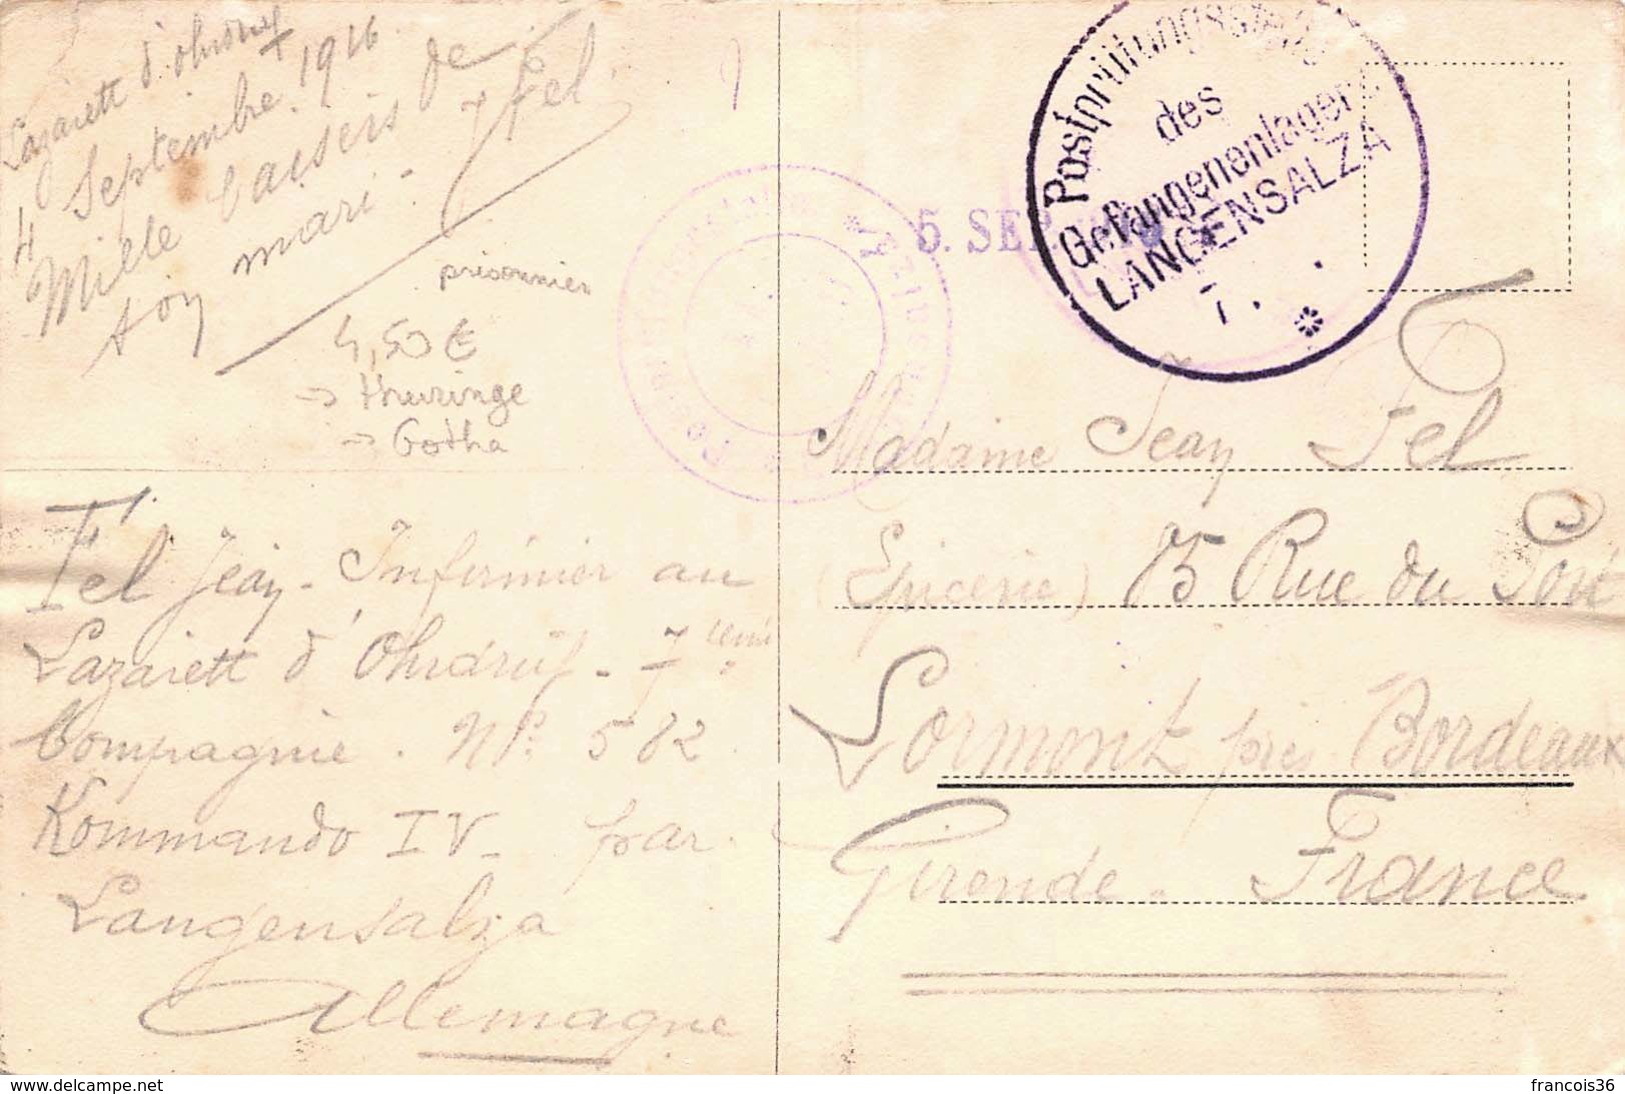 Lazarett d'Ohrdruf
4 Septembre 1916
Mille baisers de
ton mari. J Fel
prisonnier
4,50€
→ thuringe
→ Gotha
Fel Jean - Infirmier au
Lazarett d'Ohrdruf - 7ième
Compagnie. No. 582
Kommando IV - par
Langensalza
Allemagne
5. SEP.
Postprüfungs
des
Gefangenenlagers
LANGENSALZA
7. *
Madame Jean Fel
(Epicerie) 75 Rue du
Lormont près Bordeaux
Gironde - France
www.delcampe.net
francois36